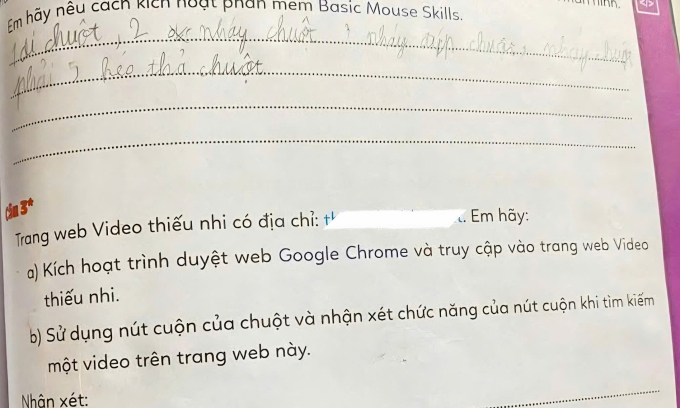 Em hãy nêu cách kích hoạt phần mềm Basic Mouse Skills.
chuột, 2 nháy chuột nháy chuột
phải 5 kéo thả chuột
Câu 3*
Trang web Video thiếu nhi có địa chỉ: Em hãy:
a) Kích hoạt trình duyệt web Google Chrome và truy cập vào trang web Video
thiếu nhi.
b) Sử dụng nút cuộn của chuột và nhận xét chức năng của nút cuộn khi tìm kiếm
một video trên trang web này.
Nhận xét: